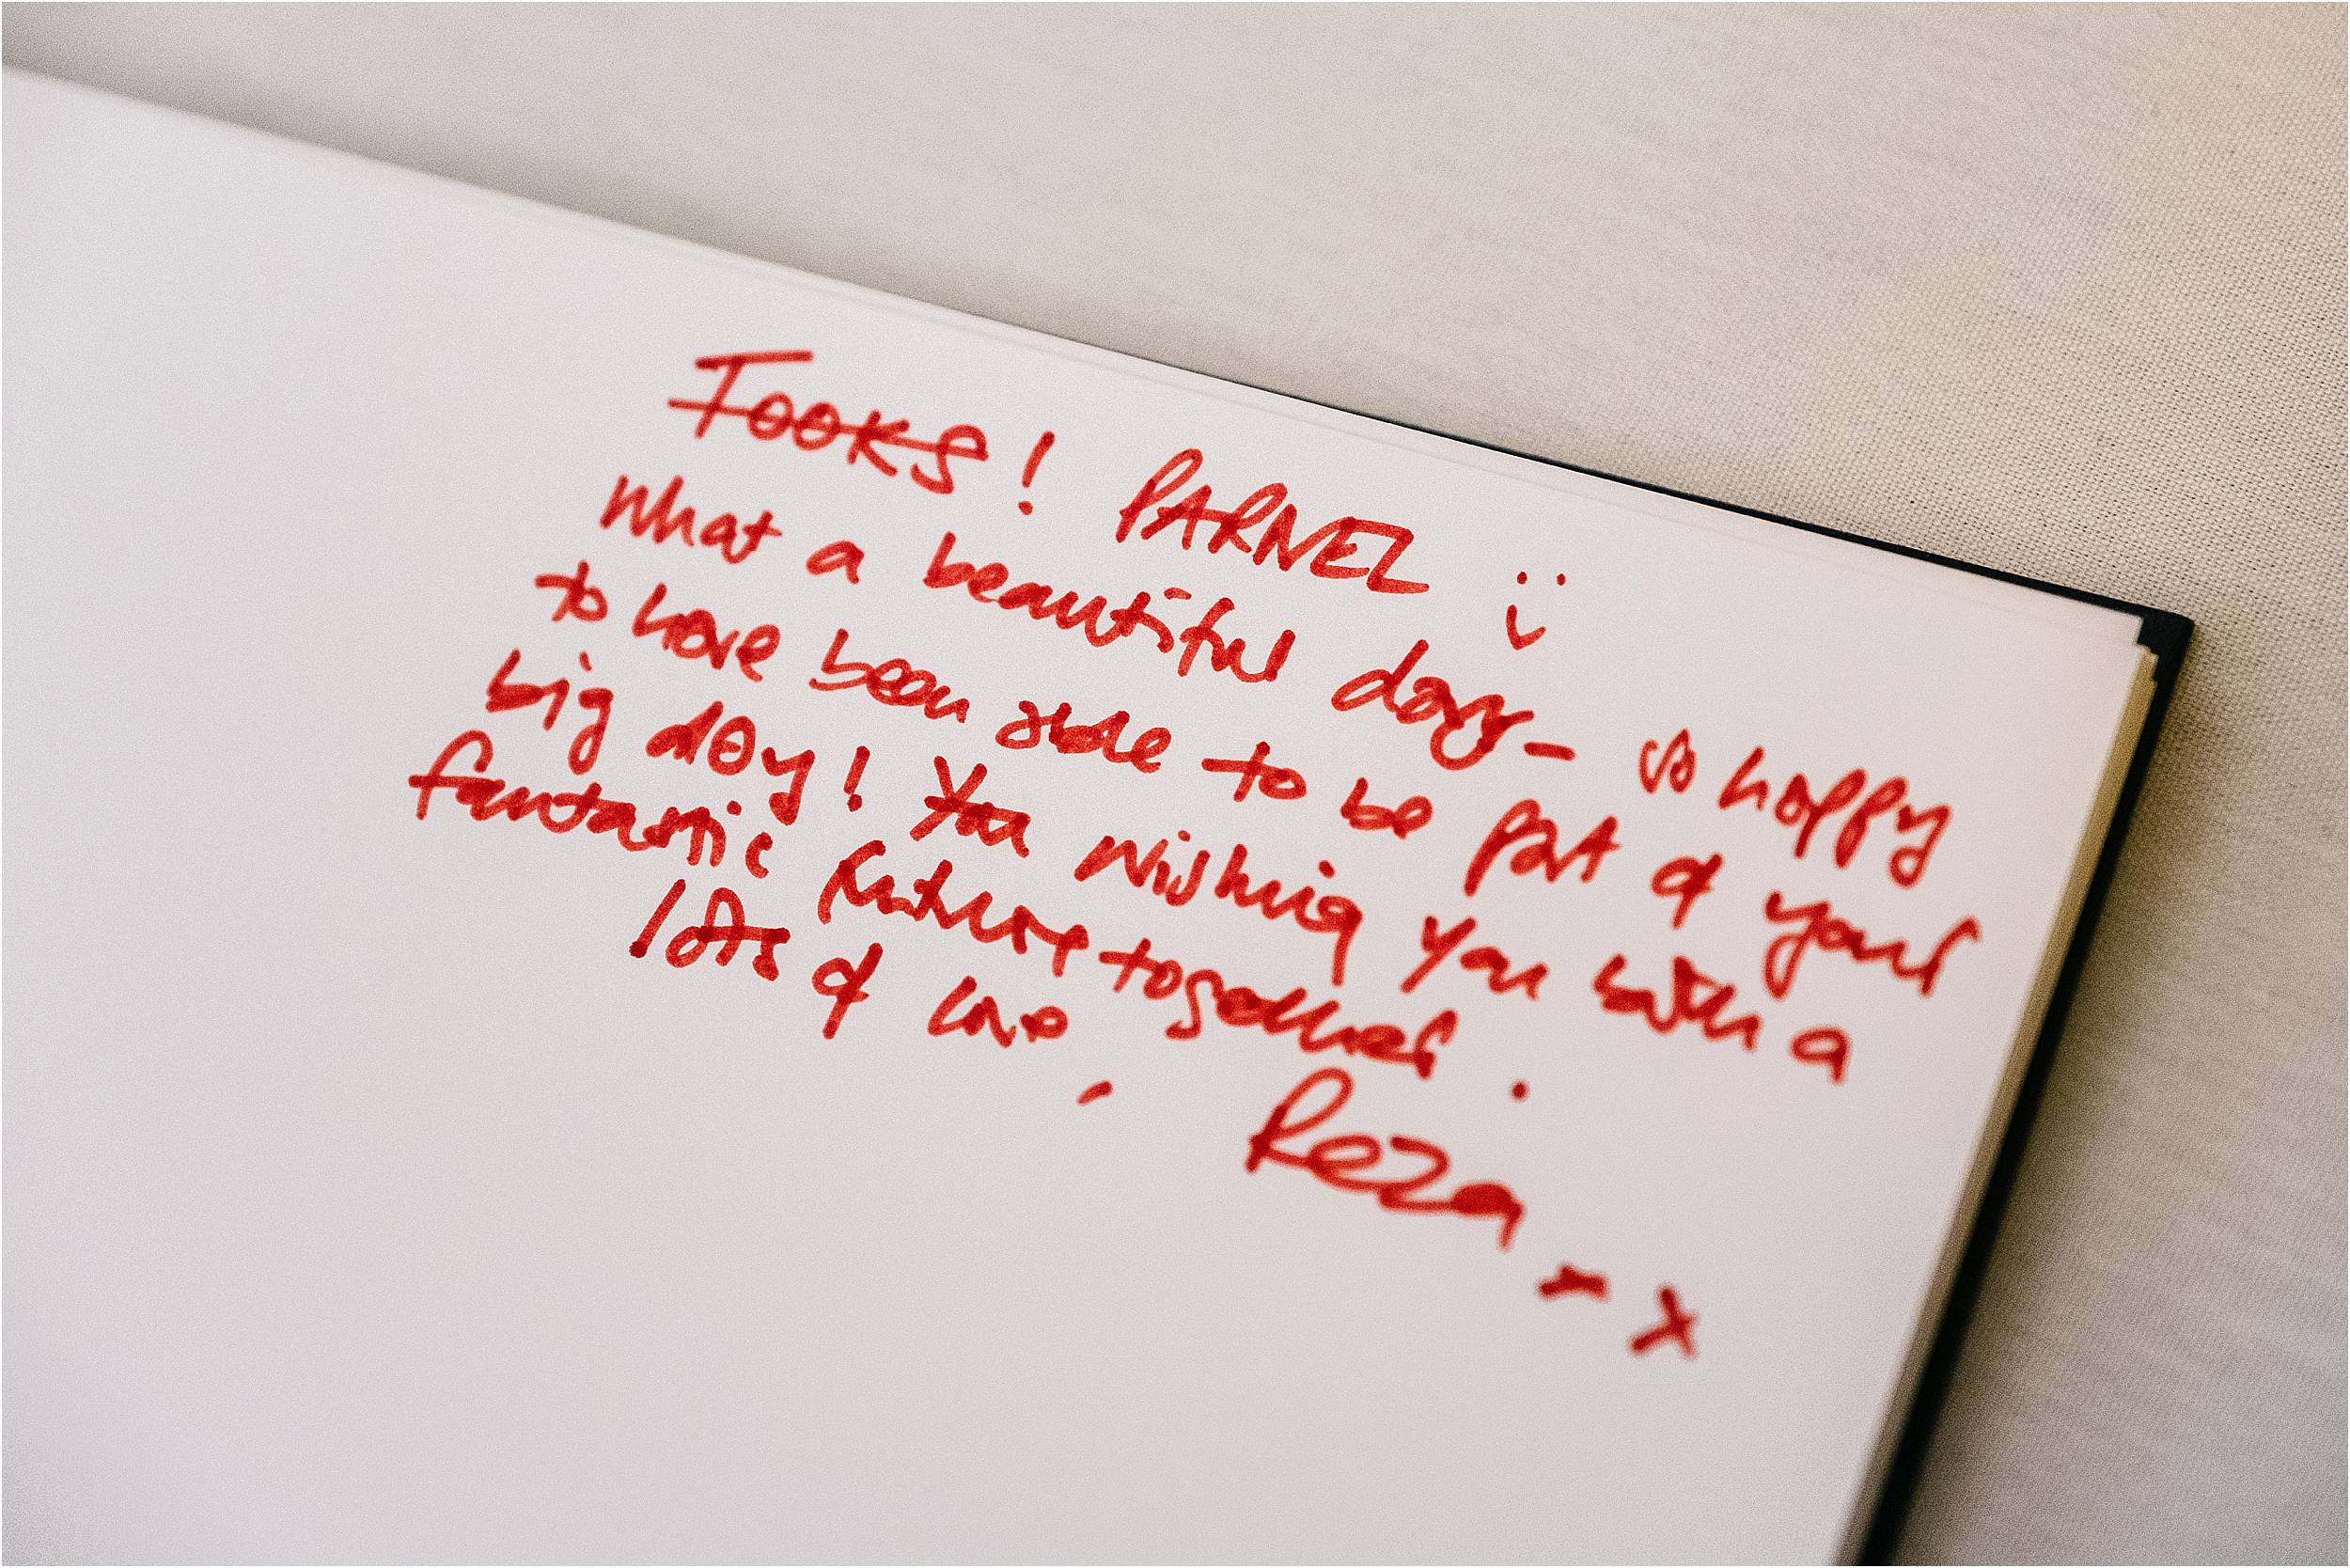 TOOKS! PARNEL :)
What a beautiful day - so happy
to have been able to be part of your
big day! You wishing you with a
fantastic future together.
lots of love,
Reza - x